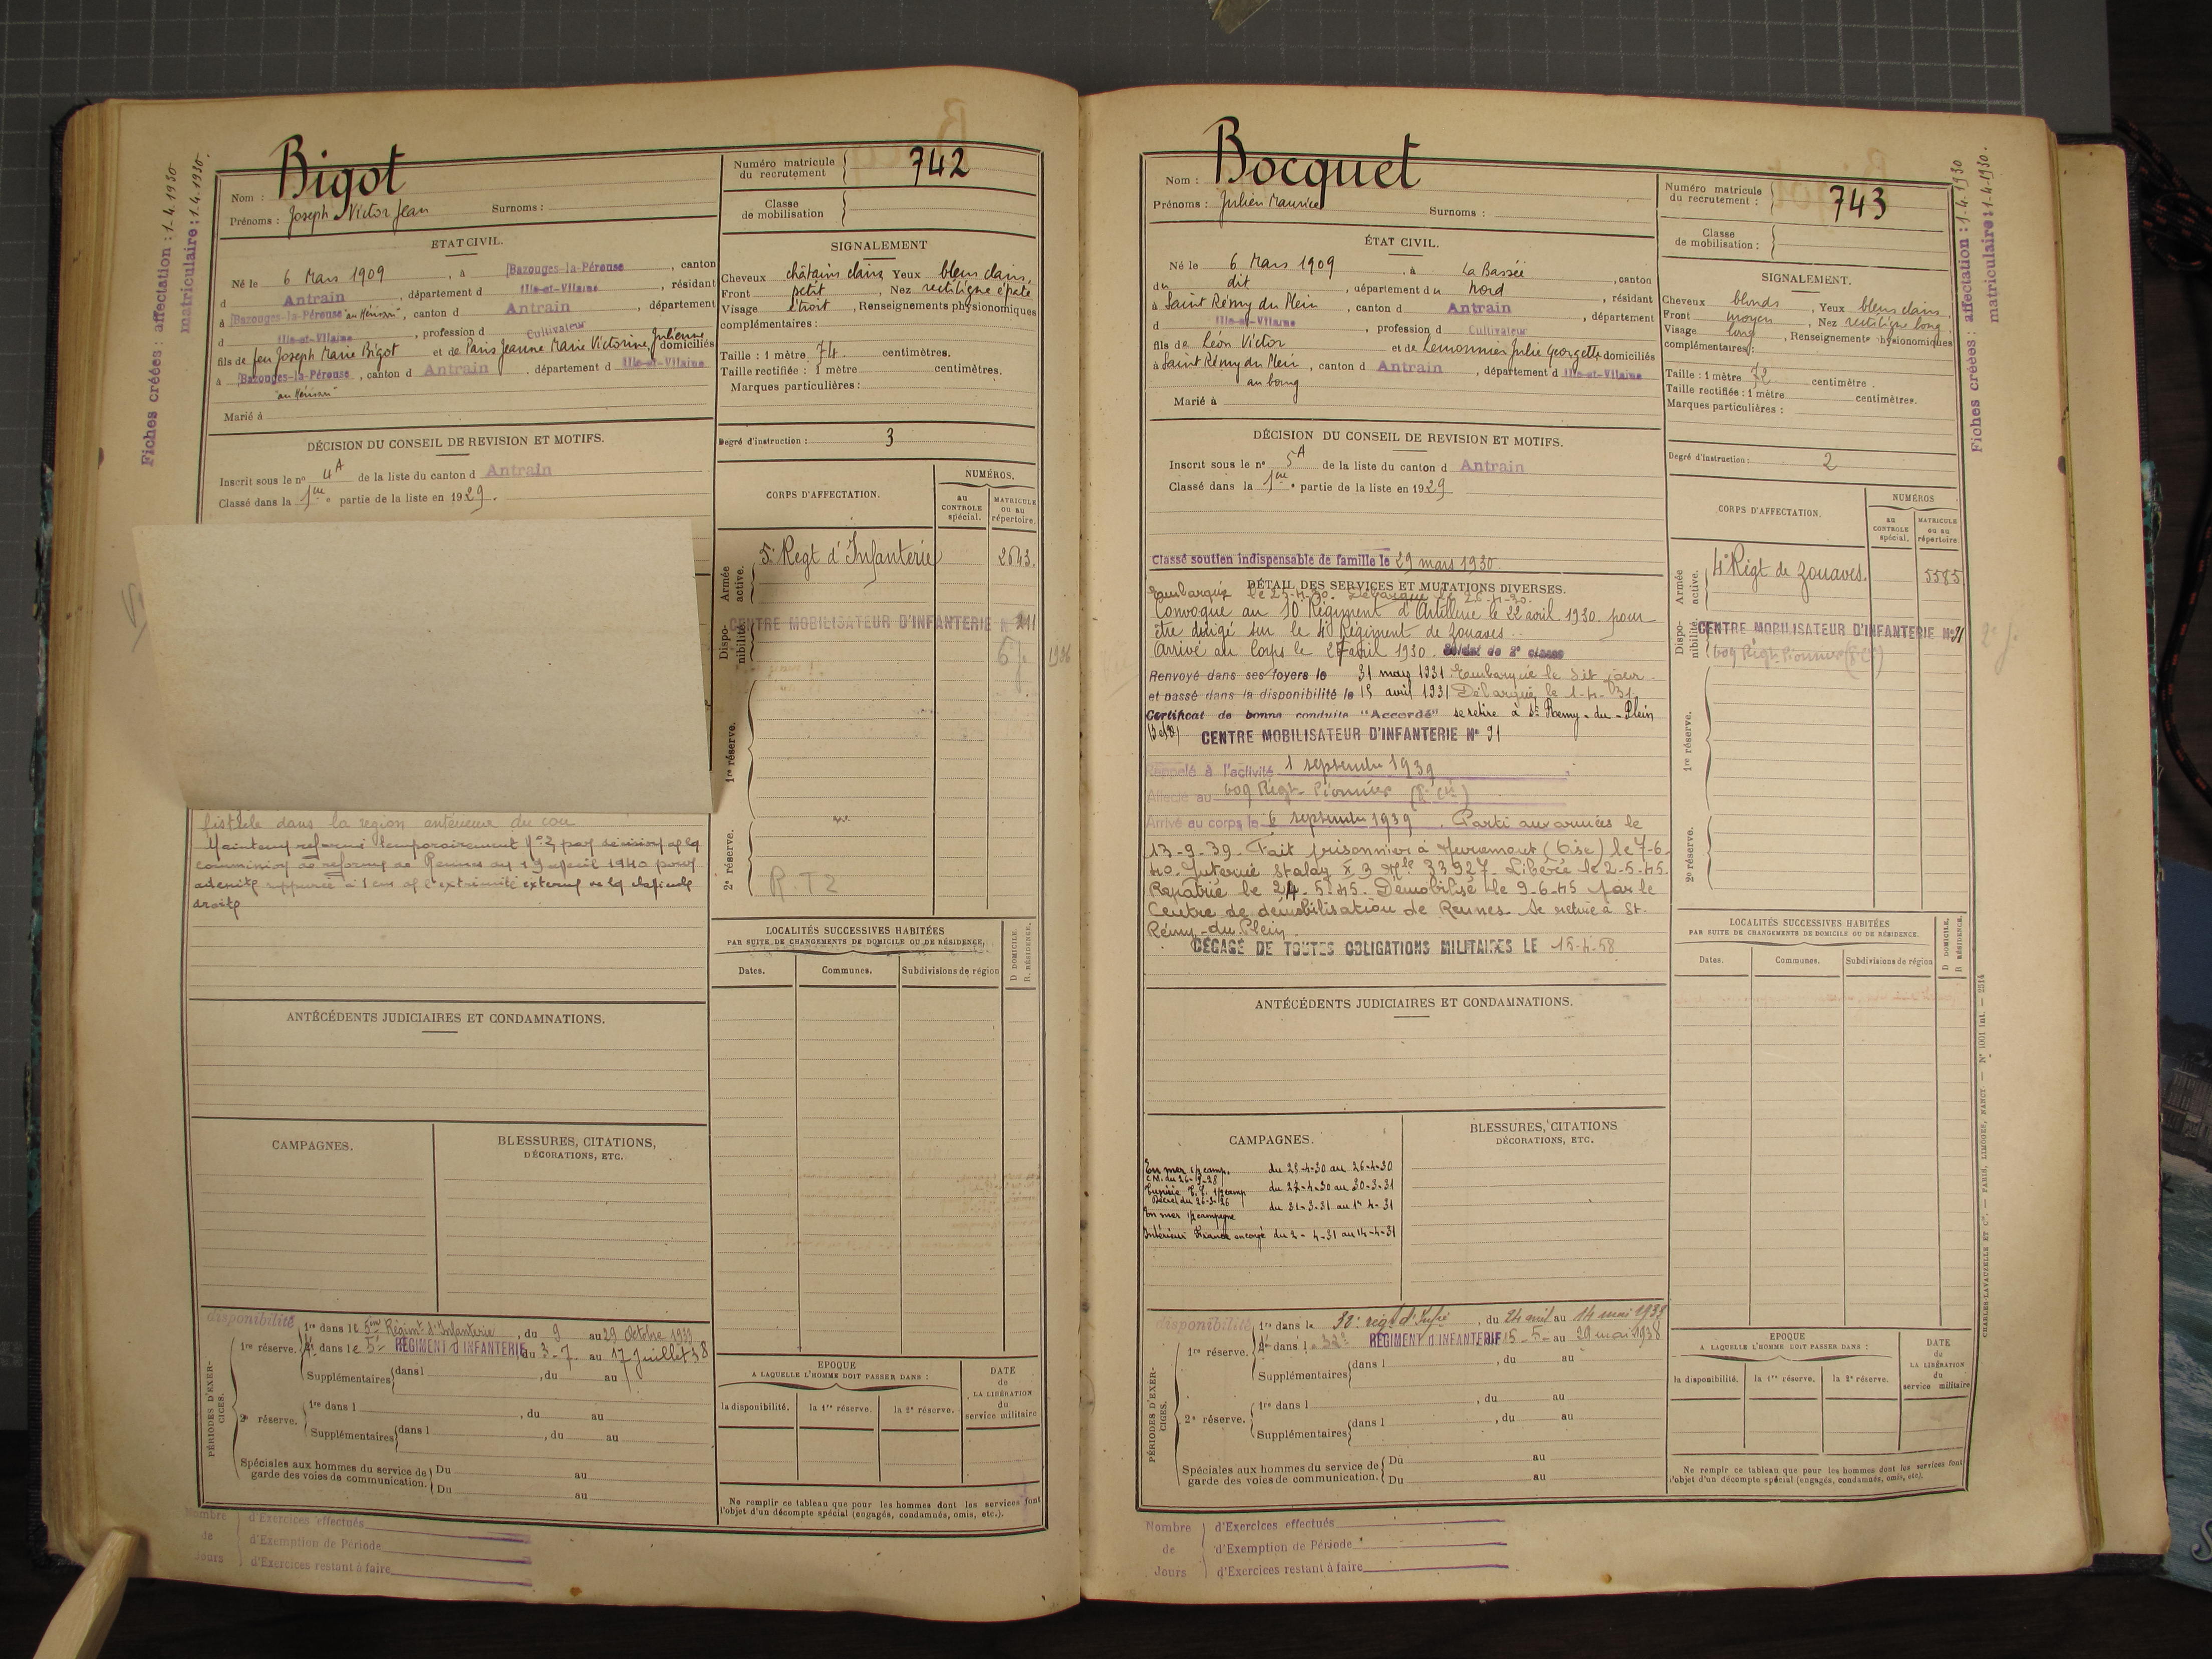 Fiches créées : affectation : 1-4-1930
matriculaire : 1-4-1930.
Nom : Bigot
Prénoms : Joseph Victor Jean Surnoms :
Numéro matricule du recrutement 742
Classe de mobilisation
ETAT CIVIL.
Né le 6 Mars 1909, à Bazouges-la-Pérouse, canton
d Antrain, département d Ille-et-Vilaine, résidant
à Bazouges-la-Pérouse "au Hérisson", canton d Antrain, département
d Ille-et-Vilaine, profession d Cultivateur
fils de feu Joseph Marie Bigot et de Paris Jeanne Marie Victorine Julienne domiciliés
à Bazouges-la-Pérouse, canton d Antrain, département d Ille-et-Vilaine
"au Hérisson"
Marié à
SIGNALEMENT
Cheveux châtains clairs Yeux bleus clairs,
Front petit, Nez rectiligne épaté
Visage étroit, Renseignements physionomiques
complémentaires :
Taille : 1 mètre 74 centimètres.
Taille rectifiée : 1 mètre centimètres.
Marques particulières :
Degré d'instruction : 3
DÉCISION DU CONSEIL DE REVISION ET MOTIFS.
Inscrit sous le n° 4A de la liste du canton d Antrain
Classé dans la 1re partie de la liste en 1929.
CORPS D'AFFECTATION.
NUMÉROS.
au CONTROLE spécial.
MATRICULE ou au répertoire.
Armée active.
5e Regt d'Infanterie 2643.
Disponibilité
CENTRE MOBILISATEUR D'INFANTERIE N°
1re réserve.
2e réserve.
R.T2
fistule dans la région antérieure du cou
Maintenu réformé temporairement n° 2 par décision de la
commission de réforme de Rennes du 19 avril 1940 pour
adenite suppurée à 1 cm de l'extrémité externe de la clavicule
droite
ANTÉCÉDENTS JUDICIAIRES ET CONDAMNATIONS.
LOCALITÉS SUCCESSIVES HABITÉES
PAR SUITE DE CHANGEMENTS DE DOMICILE OU DE RÉSIDENCE.
Dates. Communes. Subdivisions de région
D DOMICILE.
R. RÉSIDENCE.
CAMPAGNES.
BLESSURES, CITATIONS,
DÉCORATIONS, ETC.
PÉRIODES D'EXERCICES.
disponibilité
1re réserve.
1re dans le 5em Régimt d'Infanterie, du 9 au 29 Octobre 1933
2e dans le 5e REGIMENT d'INFANTERIE du 3-7 au 17 Juillet 38
Supplémentaires dans l , du au
2e réserve.
1re dans l , du au
Supplémentaires dans l , du au
Spéciales aux hommes du service de garde des voies de communication. Du au
Du au
EPOQUE
A LAQUELLE L'HOMME DOIT PASSER DANS :
la disponibilité. la 1re réserve. la 2e réserve.
DATE de LA LIBÉRATION du service militaire
Ne remplir ce tableau que pour les hommes dont les services font
l'objet d'un décompte spécial (engagés, condamnés, omis, etc.).
Nombre de Jours
d'Exercices effectués
d'Exemption de Période
d'Exercices restant à faire
Nom : Bocquet
Prénoms : Julien Maurice Surnoms :
Numéro matricule du recrutement : 743
Classe de mobilisation :
ÉTAT CIVIL.
Né le 6 Mars 1909, à La Bassée, canton
du dit, département du Nord, résidant
à Saint Rémy du Plein, canton d Antrain, département
d Ille-et-Vilaine, profession d Cultivateur
fils de Léon Victor et de Lemonnier Julie Georgette domiciliés
à Saint Rémy du Plein, canton d Antrain, département d Ille-et-Vilaine
au bourg
Marié à
SIGNALEMENT.
Cheveux blonds, Yeux bleus clairs,
Front moyen, Nez rectiligne long,
Visage long, Renseignements physionomiques
complémentaires :
Taille : 1 mètre 72 centimètre.
Taille rectifiée : 1 mètre centimètres.
Marques particulières :
Degré d'instruction : 2
DÉCISION DU CONSEIL DE REVISION ET MOTIFS.
Inscrit sous le n° 5A de la liste du canton d Antrain
Classé dans la 1re partie de la liste en 1929
Classé soutien indispensable de famille le 29 mars 1930.
DÉTAIL DES SERVICES ET MUTATIONS DIVERSES.
Embarqué le 25-4-30. Débarqué le 26-4-30.
Convoqué au 10e Régiment d'Artillerie le 22 avril 1930 pour
être dirigé sur le 4e Régiment de zouaves.
Arrivé au Corps le 27 avril 1930. Soldat de 2e classe
Renvoyé dans ses foyers le 31 mars 1931 Embarqué le dit jour
et passé dans la disponibilité le 15 avril 1931 Débarqué le 1-4-31
Certificat de bonne conduite "Accordé" se retire à St Rémy-du-Plein
CENTRE MOBILISATEUR D'INFANTERIE N° 91
Rappelé à l'activité 1 septembre 1939
Affecté au 609 Régt Pionnier
Arrivé au corps le 6 septembre 1939. Parti aux armées le
13-9-39. Fait prisonnier à (Oise) le 7-6-
40. Interné stalag X B Mle 33927. Libéré le 2-5-45.
Rapatrié le 24-5-45. Démobilisé le 9-6-45 par le
Centre de démobilisation de Rennes. Se retire à St.
Rémy-du-Plein.
DÉGAGÉ DE TOUTES OBLIGATIONS MILITAIRES LE 15-4-58
CORPS D'AFFECTATION.
NUMÉROS
au CONTROLE spécial.
MATRICULE ou au répertoire
Armée active.
4e Régt de zouaves. 5585
Disponibilité.
CENTRE MOBILISATEUR D'INFANTERIE N°91
609 Régt Pionnier
1re réserve.
2e réserve.
ANTÉCÉDENTS JUDICIAIRES ET CONDAMNATIONS.
LOCALITÉS SUCCESSIVES HABITÉES
PAR SUITE DE CHANGEMENTS DE DOMICILE OU DE RÉSIDENCE.
Dates. Communes. Subdivisions de région
D DOMICILE.
R RÉSIDENCE.
CAMPAGNES.
En mer 1/2 camp. du 25-4-30 au 26-4-30
Tunisie 1/2 camp du 27-4-30 au 30-3-31
Décret du 26-3-26
En mer 1/2 campagne du 31-3-31 au 1er 4-31
Intérieur France en congé du 2-4-31 au 14-4-31
BLESSURES, CITATIONS
DÉCORATIONS, ETC.
PÉRIODES D'EXERCICES.
disponibilité
1re réserve.
1re dans le régt d'Infie, du 24 avril au 14 mai
2e dans l REGIMENT d'INFANTERIE 15-5- au 29 mai 1938
Supplémentaires dans l , du au
, du au
2e réserve.
1re dans l , du au
Supplémentaires dans l , du au
Spéciales aux hommes du service de garde des voies de communication. Du au
Du au
EPOQUE
A LAQUELLE L'HOMME DOIT PASSER DANS :
la disponibilité. la 1re réserve. la 2e réserve.
DATE du LA LIBÉRATION du service militaire
Ne remplir ce tableau que pour les hommes dont les services font
l'objet d'un décompte spécial (engagés, condamnés, omis, etc).
Nombre de Jours
d'Exercices effectués
d'Exemption de Période
d'Exercices restant à faire
Fiches créées : affectation : 1-4-1930
matriculaire : 1-4-1930.
CHARLES-LAVAUZELLE ET Cie. — PARIS, LIMOGES, NANCY. — N° 1001 Int. — 2514